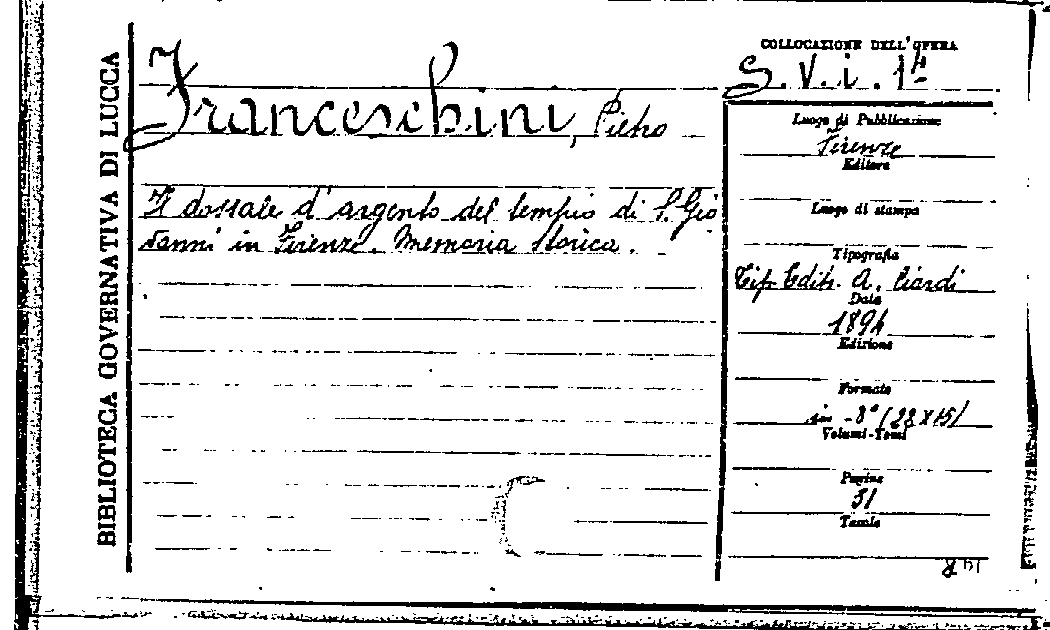 BIBLIOTECA GOVERNATIVA DI LUCCA
Franceschini, Pietro
Il dossale d'argento del tempio di S. Gio
vanni in Firenze. Memoria storica.
COLLOCAZIONE DELL'OPERA
S. V. i.
Luogo di Pubblicazione
Firenze
Editore
Luogo di stampa
Tipografia
Tip. Edit. A. Ciardi
Data
1894
Edizione
Formato
in -8° (23 x 15)
Volumi-Tomi
Pagine
31
Tavole